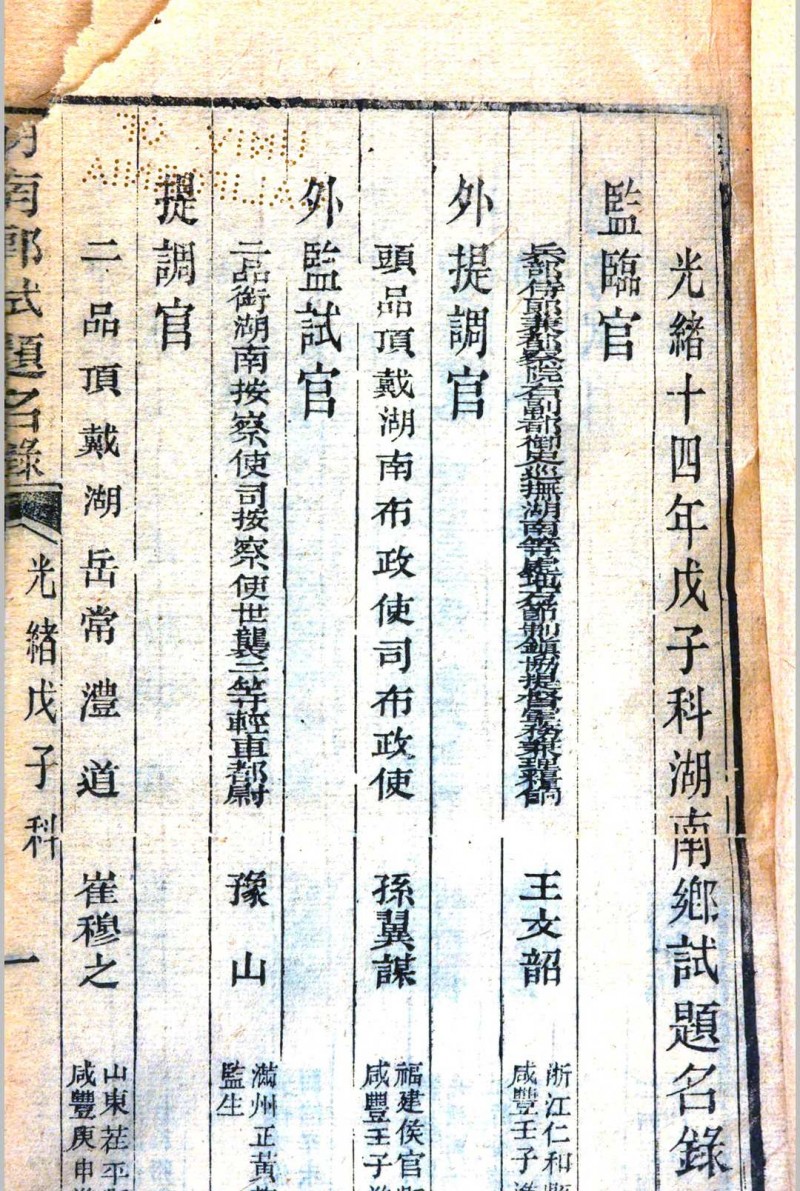 光緒十四年戊子科湖南鄉試題名錄
監臨官
兵部侍郎兼都察院右副都御史巡撫湖南等處地方節制鎮協提督軍務兼理糧餉 王文韶 浙江仁和縣
咸豐壬子進
外提調官
頭品頂戴湖南布政使司布政使 孫翼謀 福建侯官縣
咸豐壬子進
外監試官
二品銜湖南按察使司按察使世襲三等輕車都尉 豫山 滿州正黃旗
監生
提調官
二品頂戴湖岳常澧道 崔穆之 山東茌平縣
咸豐庚申進
湖南鄉試題名錄 光緒戊子科 一